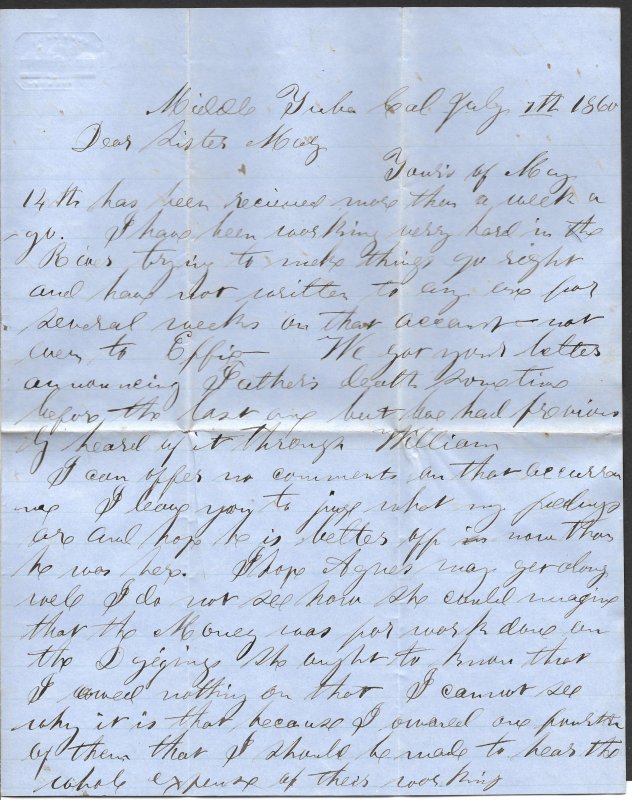 Middle Yuba Cal July 7th 1860
Dear Sister Mary
Yours of May
14th has been recieved more than a week a
go. I have been working very hard in the
River trying to make things go right
and have not written to any one for
several weeks on that account not
even to Effie We got your letter
announcing Fathers death sometime
before the last one but we had previous
ly heard of it through William
I can offer no comments on that occurran
nce I leave you to juge what my feelings
are and hope he is better off now than
he was here. I hope Agnes may get along
well I do not see how she could imagine
that the Money was for work done on
the Digigings she ought to know that
I owed nothing on that I cannot see
why it is that because I owned one fourth
of them that I should be made to bear the
whole expense of their working